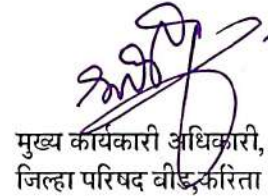 मुख्य कार्यकारी अधिकारी,
जिल्हा परिषद बीड, करिता